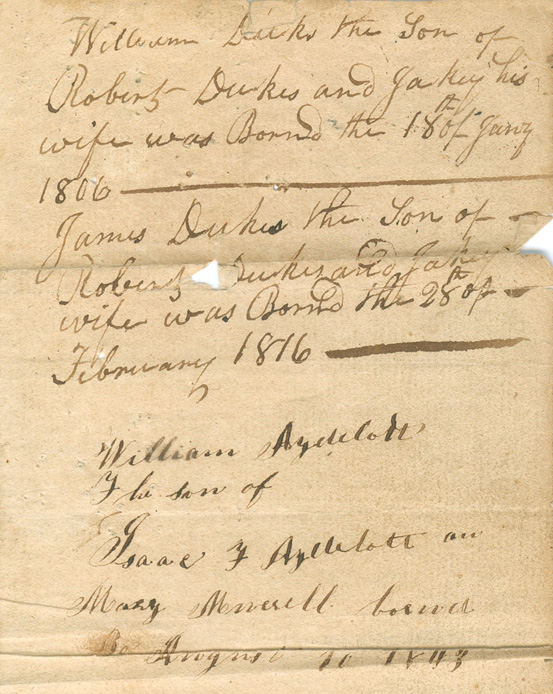 William Dukes the Son of
Robert Dukes and Jakey his
wife was Bornd the 18th of Jany
1806
James Dukes the Son of
Robert Dukes and Jakey
wife was Bornd the 28th of
February 1816
William Aydelott
The son of
Isaac J Aydelott an
Mary Merrell bornd
August 10 1843